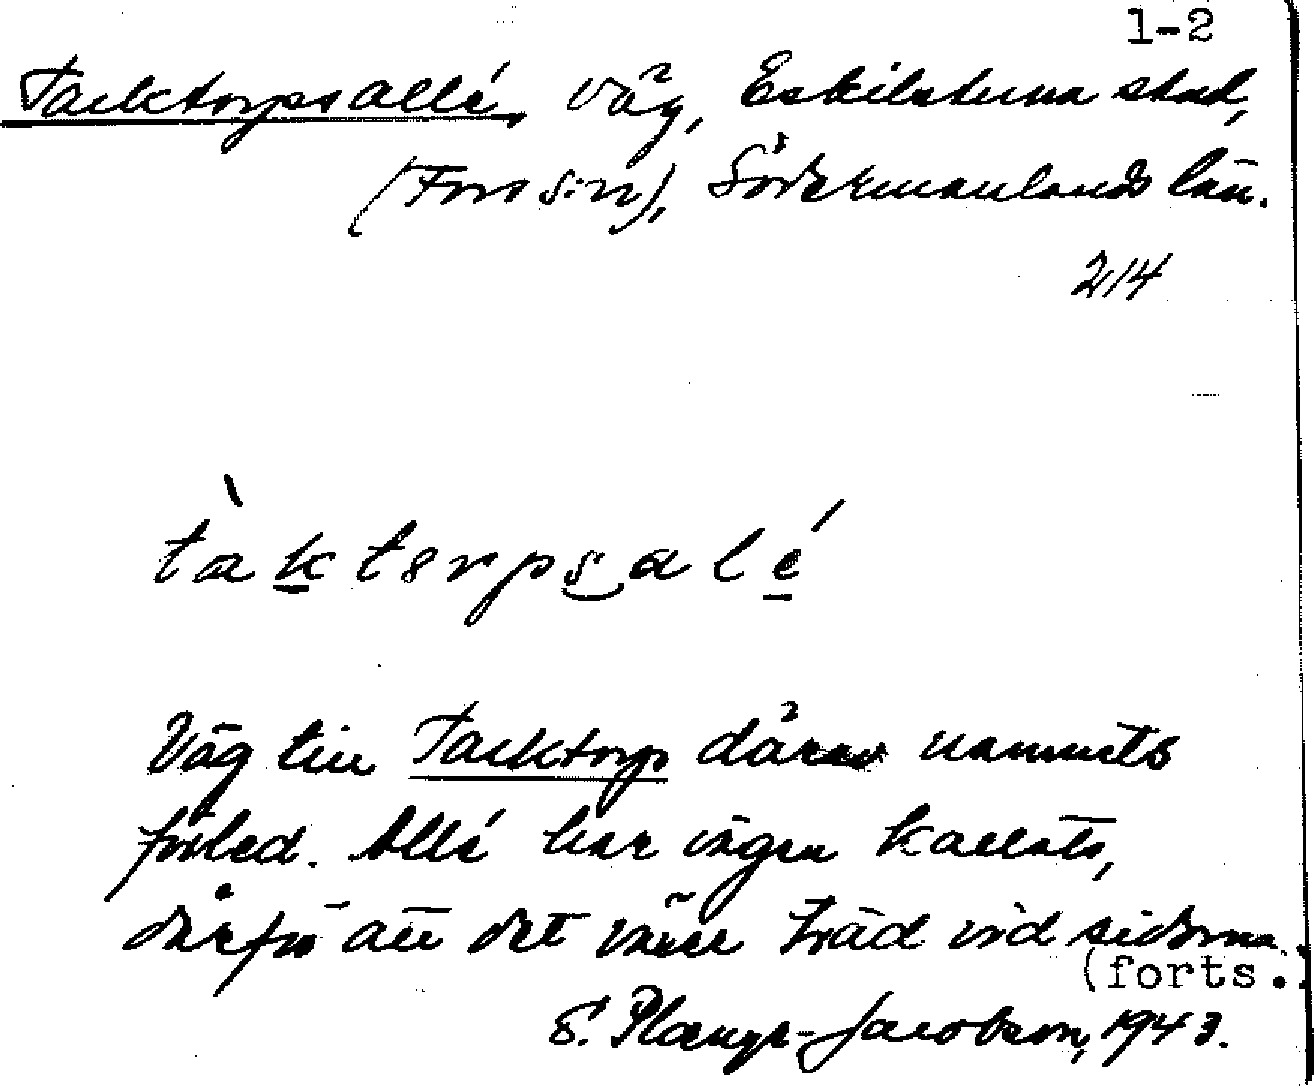 1-2
Tacktorpsallé, väg, Eskilstuna stad,
(Fors sn), Södermanlands län.
214
tàktorpsalé
Väg till Tacktorp därav namnets
förled. Allé har vägen kallats,
därför att det växer träd vid sidorna.
(forts.)
S. Plænge-Jacobson, 1943.